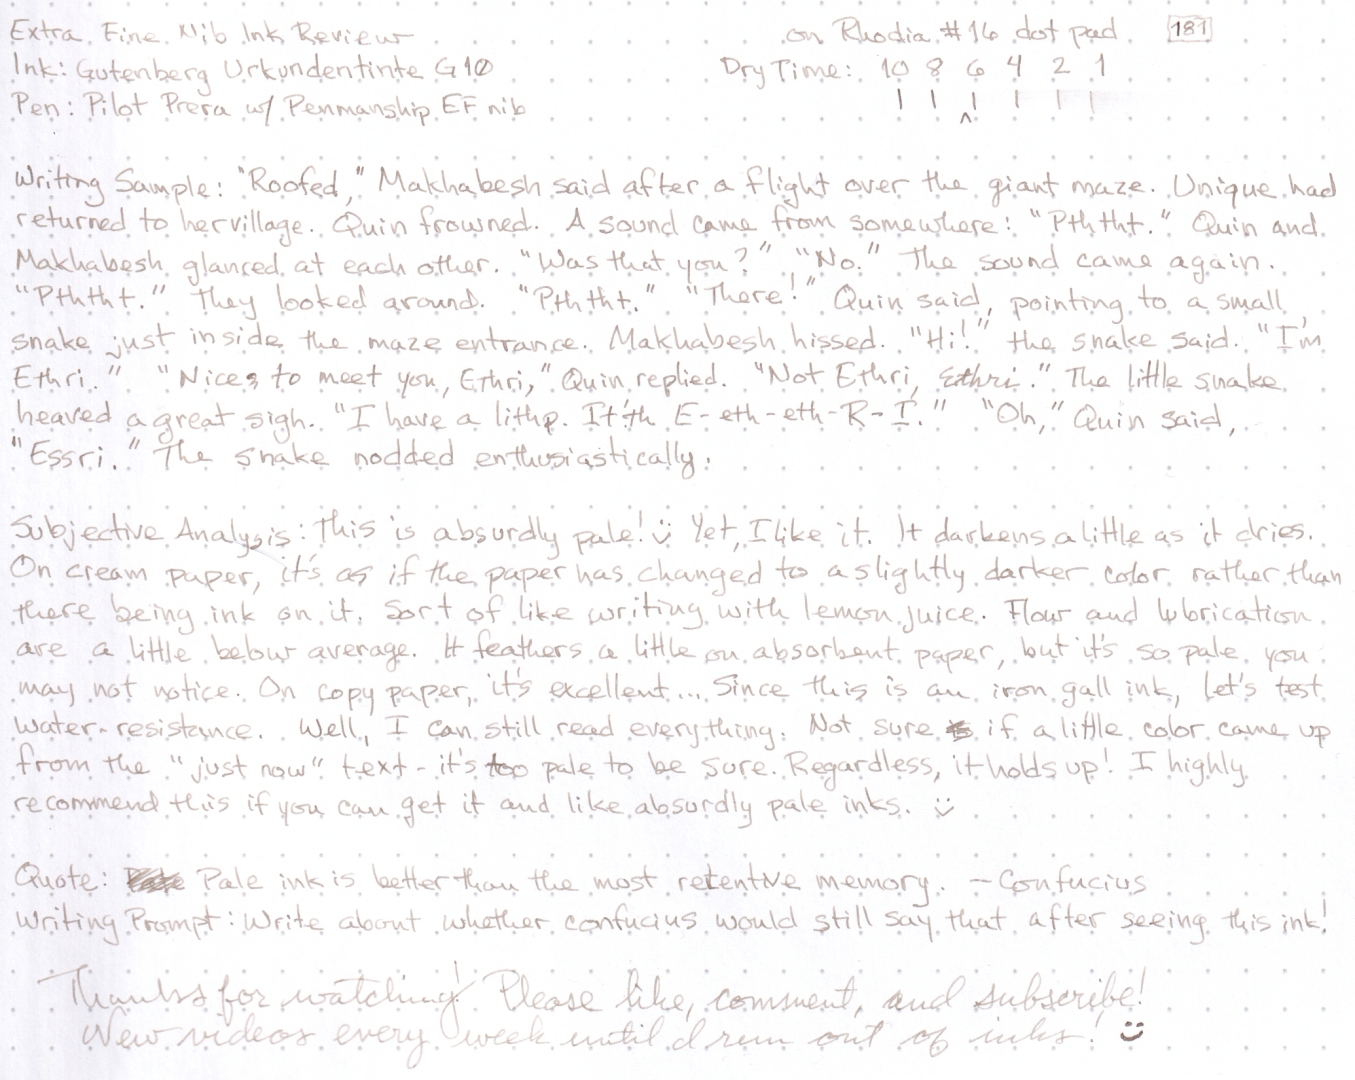 Extra Fine Nib Ink Review on Rhodia #16 dot pad 181
Ink: Gutenberg Urkundentinte G10 Dry Time: 10 8 6 4 2 1
Pen: Pilot Prera w/ Penmanship EF nib
Writing Sample: "Roofed," Makhabesh said after a flight over the giant maze. Unique had
returned to her village. Quin frowned. A sound came from somewhere: "Pththt." Quin and
Makhabesh glanced at each other. "Was that you?" "No." The sound came again.
"Pththt." They looked around. "Pththt." "There!" Quin said, pointing to a small
snake just inside the maze entrance. Makhabesh hissed. "Hi!" the snake said. "I'm
Ethri." "Nice to meet you, Ethri," Quin replied. "Not Ethri, Ethri." The little snake
heaved a great sigh. "I have a lithp. It'th E-eth-eth-R-I." "Oh," Quin said,
"Essri." The snake nodded enthusiastically.
Subjective Analysis: This is absurdly pale! :) Yet, I like it. It darkens a little as it dries.
On cream paper, it's as if the paper has changed to a slightly darker color rather than
there being ink on it. Sort of like writing with lemon juice. Flow and lubrication
are a little below average. It feathers a little on absorbent paper, but it's so pale you
may not notice. On copy paper, it's excellent... Since this is an iron gall ink, let's test
water-resistance. Well, I can still read everything. Not sure if a little color came up
from the "just now" text - it's too pale to be sure. Regardless, it holds up! I highly
recommend this if you can get it and like absurdly pale inks. :)
Quote: Pale ink is better than the most retentive memory. - Confucius
Writing Prompt: Write about whether confucius would still say that after seeing this ink!
Thanks for watching! Please like, comment, and subscribe!
New videos every week until I run out of inks! :)